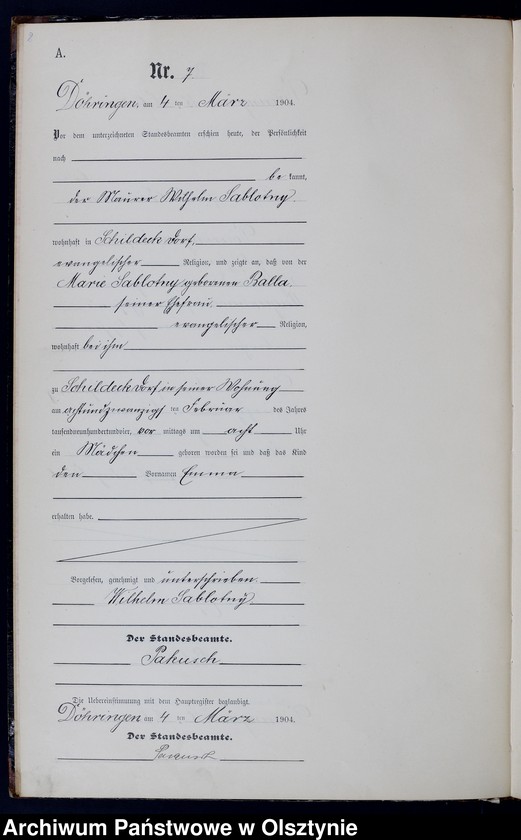 8
A.
Nr. 7
Döhringen, am 4 ten März 1904.
Vor dem unterzeichneten Standesbeamten erschien heute, der Persönlichkeit
nach
be kannt,
der Maurer Wilhelm Sablotny
wohnhaft in Schildeck Dorf,
evangelischer Religion, und zeigte an, daß von der
Marie Sablotny geborenen Balla
seiner Ehefrau
evangelischer Religion,
wohnhaft bei ihm
zu Schildeck Dorf in seiner Wohnung
am achtundzwanzig ten Februar des Jahres
tausendneunhundertundvier, vor mittags um acht Uhr
ein Mädchen geboren worden sei und daß das Kind
den Vornamen Emma
erhalten habe.
Vorgelesen, genehmigt und unterschrieben
Wilhelm Sablotny
Der Standesbeamte.
Pakusch
Die Uebereinstimmung mit dem Hauptregister beglaubigt.
Döhringen am 4 ten März 1904.
Der Standesbeamte.
Archiwum Państwowe w Olsztynie